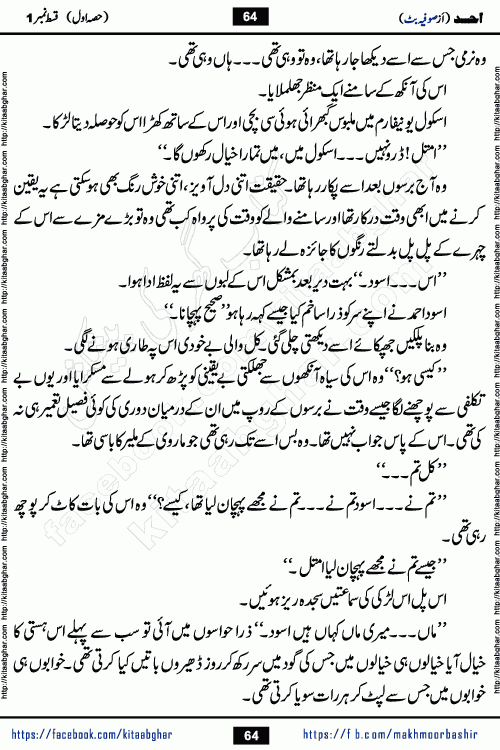 احد (از صوفیہ بٹ)
64
(حصہ اول) قسط نمبر 1
وہ نرمی جس سے اسے دیکھا جا رہا تھا، وہ تو وہی تھی۔۔۔ہاں وہی تھی۔
اس کی آنکھ کے سامنے ایک منظر جھلملایا۔
اسکول یونیفارم میں ملبوس گھبرائی ہوئی سی بچی اور اس کے ساتھ کھڑا اس کو حوصلہ دیتا لڑکا۔
’’امتل! ڈرو نہیں۔۔۔اسکول میں، میں تمہارا خیال رکھوں گا۔‘‘
وہ آج برسوں بعد اسے پکار رہا تھا۔ حقیقت اتنی دل آویز، اتنی خوش رنگ بھی ہو سکتی ہے یہ یقین
کرنے میں ابھی وقت درکار تھا اور سامنے والے کو وقت کی پرواہ کب تھی وہ تو بڑے مزے سے اس کے
چہرے کے پل پل بدلتے رنگوں کا جائزہ لے رہا تھا۔
’’اس۔۔۔اسود۔‘‘ بہت دیر بعد بمشکل اس کے لبوں سے یہ لفظ ادا ہوا۔
اسود احمد نے اپنے سر کو ذرا سا خم کیا جیسے کہہ رہا ہو ’’صحیح پہچانا۔‘‘
وہ بنا پلکیں جھپکائے اسے دیکھتی چلی گئی۔ کل والی بے خودی اس پہ طاری ہونے لگی۔
’’کیسی ہو؟‘‘ وہ اس کی سیاہ آنکھوں سے جھلکتی بے یقینی کو پڑھ کر ہولے سے مسکرایا اور یوں بے
تکلفی سے پوچھنے لگا جیسے وقت نے برسوں کے روپ میں ان کے درمیان دوری کی کوئی فصیل تعمیر ہی نہ
کی تھی۔ اس کے پاس جواب نہیں تھا۔ وہ بس اسے تک رہی تھی جو ماروی کے ملیر کا باسی تھا۔
’’کل تم۔۔۔‘‘
’’تم نے۔۔۔اسود تم نے۔۔۔تم نے مجھے پہچان لیا تھا، کیسے؟‘‘ وہ اس کی بات کاٹ کر پوچھ
رہی تھی۔
’’جیسے تم نے مجھے پہچان لیا امتل۔‘‘
اس پل اس لڑکی کی سماعتیں سجدہ ریز ہوئیں۔
’’ماں۔۔۔میری ماں کہاں ہیں اسود۔‘‘ ذرا حواسوں میں آئی تو سب سے پہلے اس ہستی کا
خیال آیا خیالوں ہی خیالوں میں جس کی گود میں سر رکھ کر روز ڈھیروں باتیں کیا کرتی تھی۔ خوابوں ہی
خوابوں میں جس سے لپٹ کر ہر رات سویا کرتی تھی۔
https://facebook.com/kitaabghar
64
https://fb.com/makhmoorbashir
http://kitaabghar.com http://kitaabghar.com http://kitaabghar.com http://kitaabghar.com